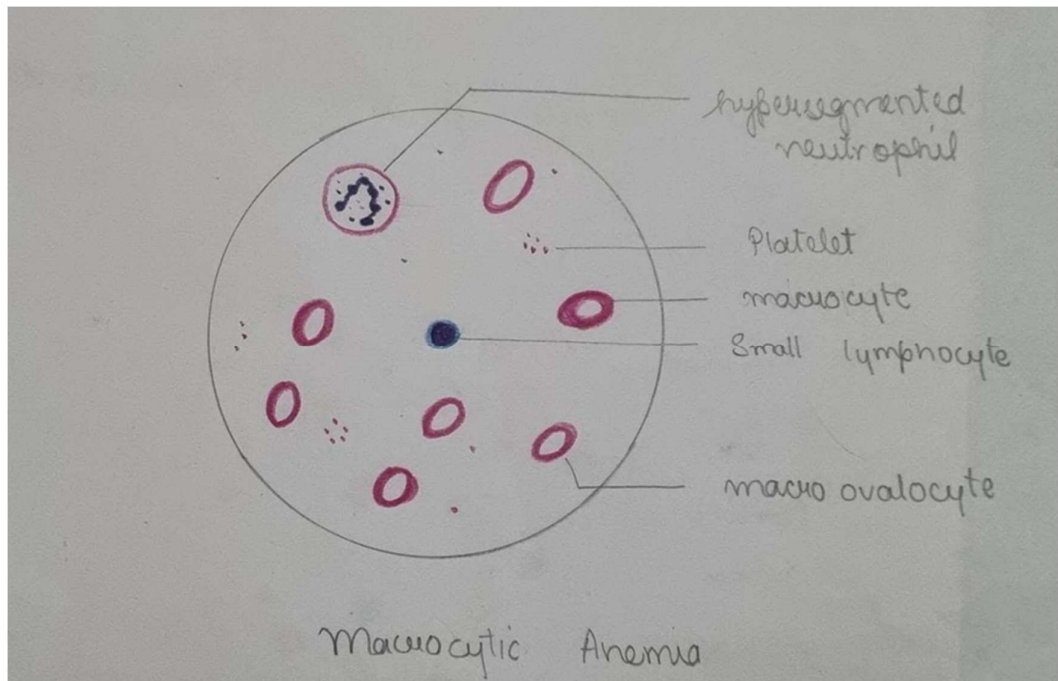 hypersegmented
neutrophil
Platelet
macrocyte
Small lymphocyte
macro ovalocyte
Macrocytic Anemia